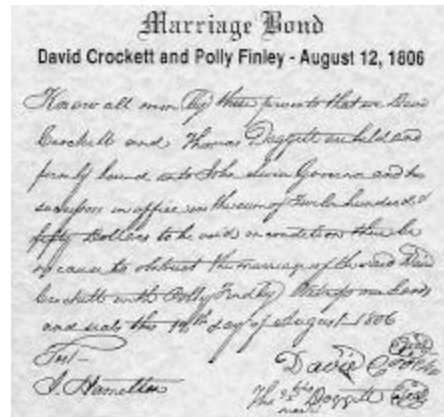 Marriage Bond
David Crockett and Polly Finley - August 12, 1806
Know all men by these presents that we David
Crockett and Thomas Doggett are held and
firmly bound unto John Sevier Governor and his
successors in office in the sum of Twelve hundred &
fifty Dollars to be void on condition there be
no cause to obstruct the marriage of the said David
Crockett with Polly Findley Witness our hands
and seals this 12th day of August 1806
Test
David Crockett Seal
J. Hamelton
Thos his Doggett Seal
mark